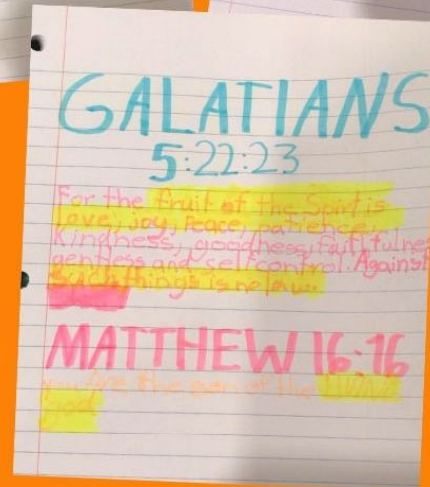 GALATIANS
5:22:23
For the fruit of the Spirit is
love, joy, Peace, patience,
Kindness, goodness, faitfulnes
gentless and self control. Against
such things is no law.
MATTHEW 16:16
you are the son of the living
god